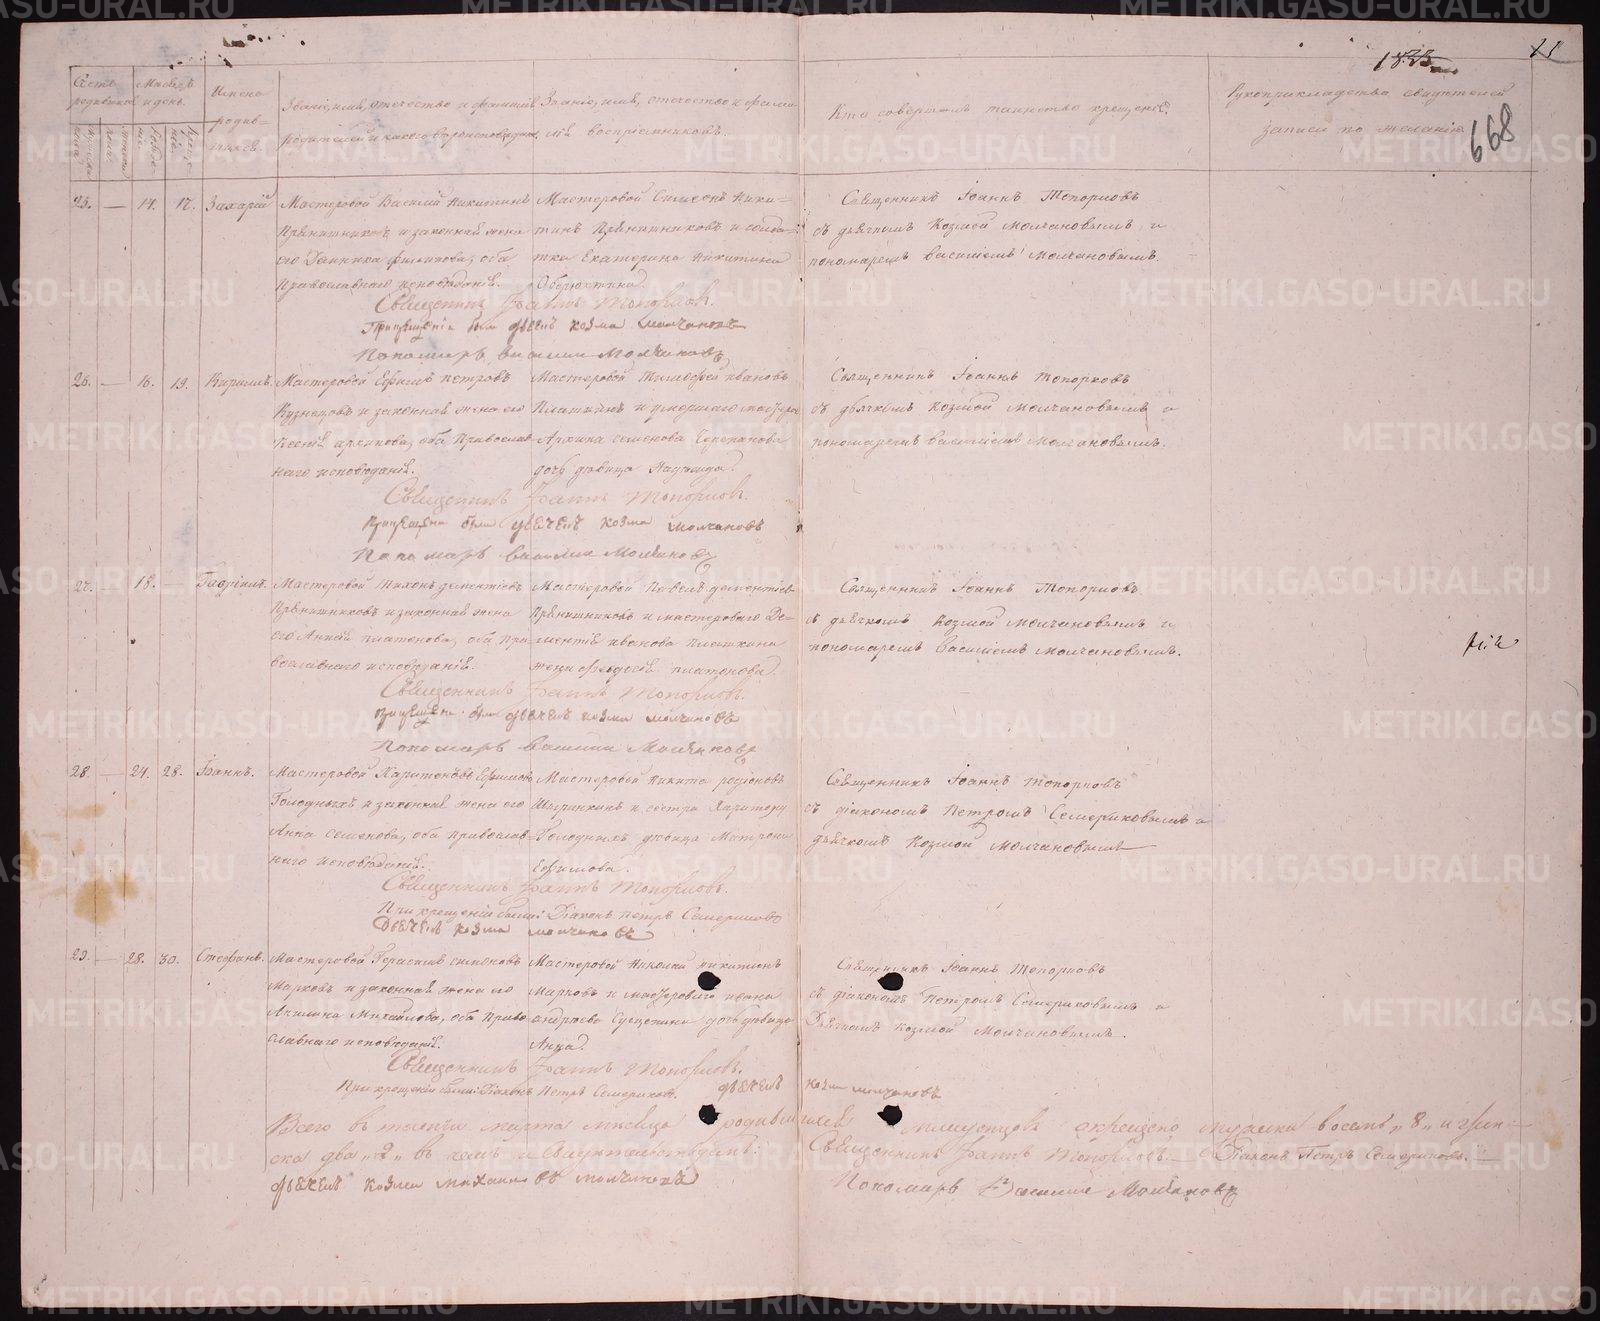 1835
11
668
Счетъ родившихся
Мѣсяцъ и день
Имена родившихся
Званіе, имя, отечество и фамилія родителей и какого вѣроисповѣданія
Званіе, имя, отечество и фамилія воспріемниковъ.
Кто совершалъ таинство крещенія.
Рукоприкладство свидѣтелей записи по желанію.
25. — 14. 17. Захарій
Мастеровой Василій Никитинъ
Прянишниковъ и законная жена
его Домника Филипова, оба
Православнаго исповѣданія.
Мастеровой Симеонъ Ники-
тинъ Прянишниковъ и солда-
тка Екатерина Никитина
Священникъ Іоаннъ Топорковъ
съ дьячкомъ Козмой Молчановымъ и
пономаремъ Василіемъ Молчановымъ.
Священникъ Іоаннъ Топорковъ.
При крещеніи былъ дьячекъ Козма Молчановъ
Пономарь Василий Молчановъ
26. — 16. 19. Кириллъ.
Мастеровой Ефимъ Петровъ
Кузнецовъ и законная жена его
Ксенія Архипова, оба Православ-
наго исповѣданія.
Мастеровой Тимофей Ивановъ
Платкинъ и умершаго мастера
Архипа Семенова Черепанова
дочь дѣвица Надежда.
Священникъ Іоаннъ Топорковъ
съ дьячкомъ Козмой Молчановымъ и
пономаремъ Василіемъ Молчановымъ.
Священникъ Іоаннъ Топорковъ.
При крещеніи былъ дьячекъ Козма Молчановъ
Пономарь Василий Молчановъ
27. 18. — Гавріилъ.
Мастеровой Тихонъ Дементіевъ
Прянишниковъ и законная жена
его Анна Платонова, оба Пра-
вославнаго исповѣданія.
Мастеровой Павелъ Дементіевъ
Прянишниковъ и мастероваго Де-
ментія Иванова Платкина
жена Федосія Платонова.
Священникъ Іоаннъ Топорковъ
съ дьячкомъ Козмой Молчановымъ и
пономаремъ Василіемъ Молчановымъ.
Священникъ Іоаннъ Топорковъ.
При крещеніи былъ дьячекъ Козма Молчановъ
Пономарь Василий Молчановъ
28 — 24. 28. Іоаннъ.
Мастеровой Харитонъ Ефимовъ
Голодныхъ и законная жена его
Анна Семенова, оба Православ-
наго исповѣданія.
Мастеровой Никита Родіоновъ
Ширинкинъ и сестра Харитона
Голодныхъ дѣвица Матрона
Ефимова.
Священникъ Іоаннъ Топорковъ
съ діакономъ Петромъ Семериковымъ и
дьячкомъ Козмой Молчановымъ
Священникъ Іоаннъ Топорковъ.
При крещеніи были: Діаконъ Петръ Семериковъ
Дьячекъ Козма Молчановъ
29. — 28. 30. Стефанъ.
Мастеровой Герасимъ Симоновъ
Марковъ и законная жена его
Акилина Михайлова, оба Право-
славнаго исповѣданія.
Мастеровой Николай Никитинъ
Марковъ и мастероваго Ивана
Андреева дочь дѣвица
Анна.
Священникъ Іоаннъ Топорковъ
съ діакономъ Петромъ Семериковымъ и
Дьячкомъ Козмой Молчановымъ.
Священникъ Іоаннъ Топорковъ.
При крещеніи были: Діаконъ Петръ Семериковъ. дьячекъ Козма Молчановъ
Всего въ теченіи марта мѣсяца родившихся младенцовъ окрещено мужеска восемь „8„ и жен-
ска два „2„ въ чемъ и свидѣтельствуемъ: Священникъ Іоаннъ Топорковъ. — Діаконъ Петръ Семериковъ. —
дьячекъ Козма Михаиловъ Молчановъ Пономарь Василие Молчановъ
METRIKI.GASO-URAL.RU